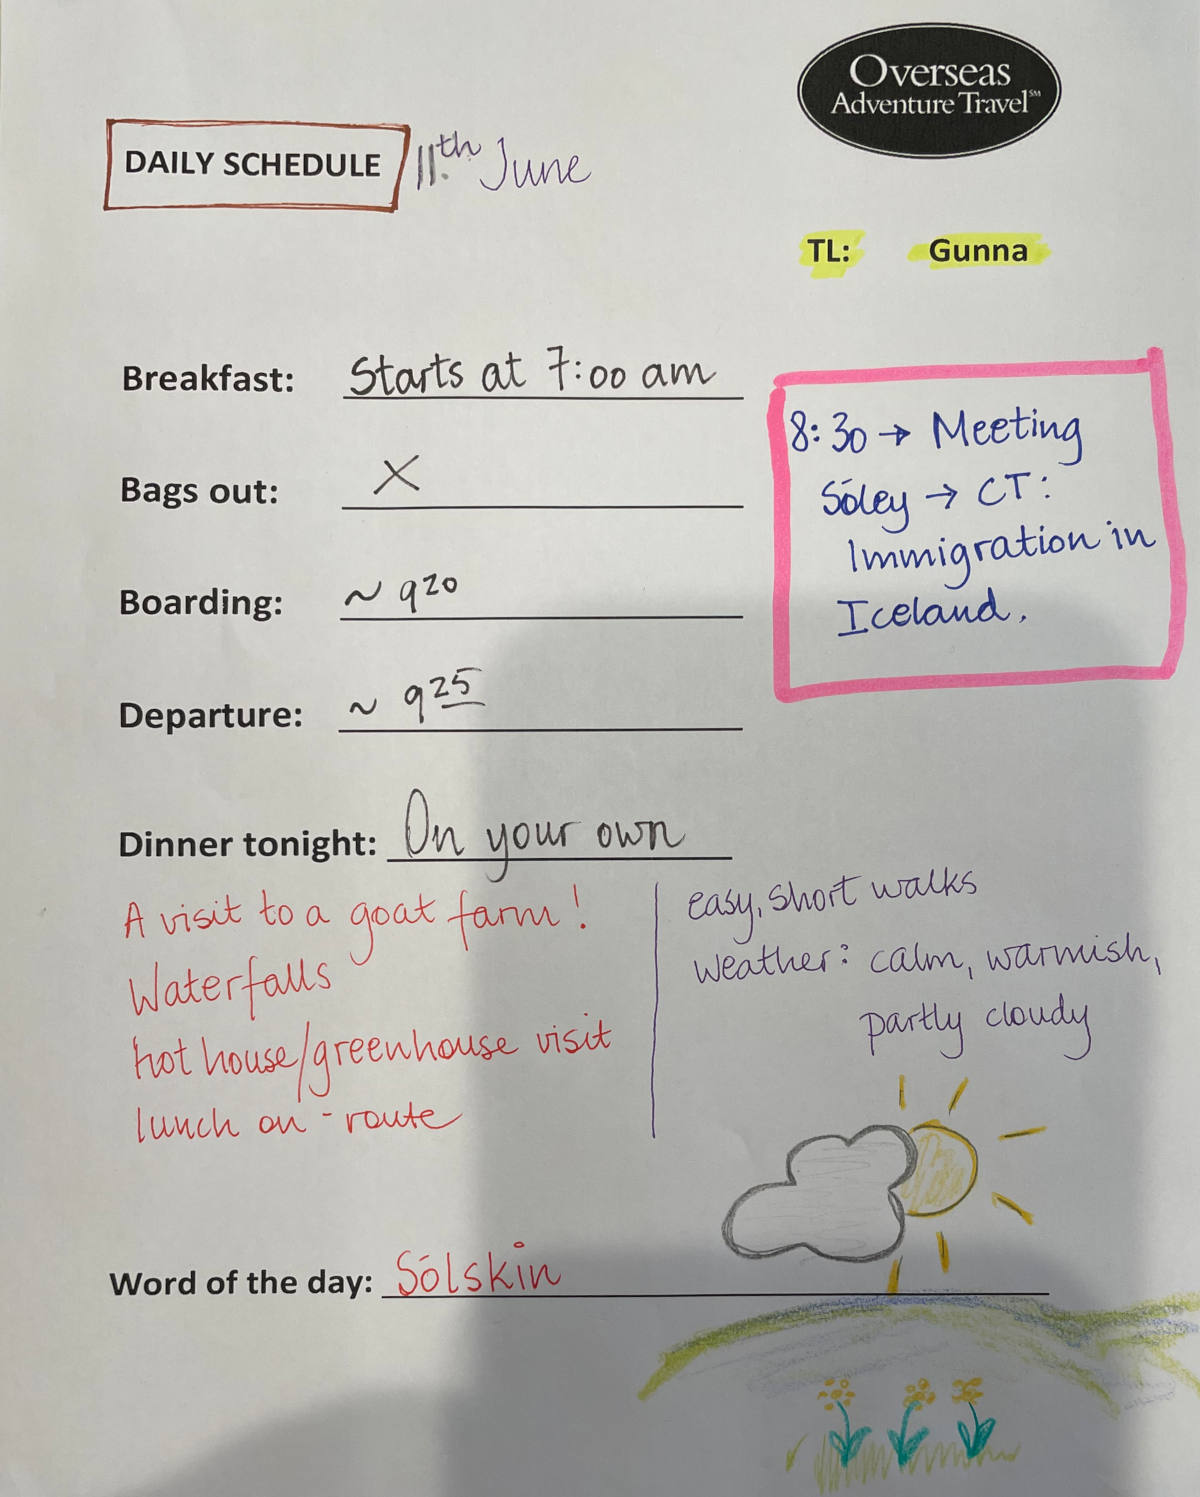 Overseas
Adventure Travel℠
DAILY SCHEDULE 11.th June
TL: Gunna
Breakfast: Starts at 7:00 am
Bags out: X
Boarding: ~ 9 20
Departure: ~ 9 25
8:30 → Meeting
Sóley → CT:
Immigration in
Iceland.
Dinner tonight: On your own
A visit to a goat farm!
Waterfalls
hot house/greenhouse visit
lunch on-route
easy, short walks
weather: calm, warmish,
partly cloudy
Word of the day: Sólskin